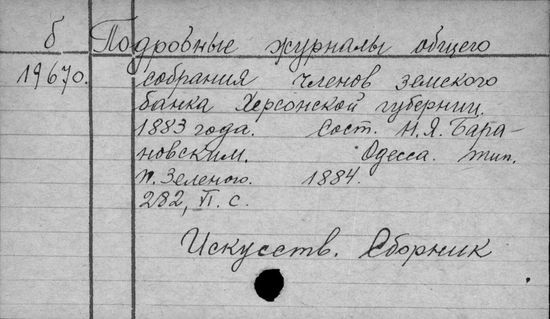 б Подробные журналы общего
19670. собрания членов земского
банка Херсонской губернии.
1883 года. Сост. Н.Я. Бара-
новским. Одесса. тип.
П. Зеленого. 1884.
282, VI. с.
Искусств. Сборник